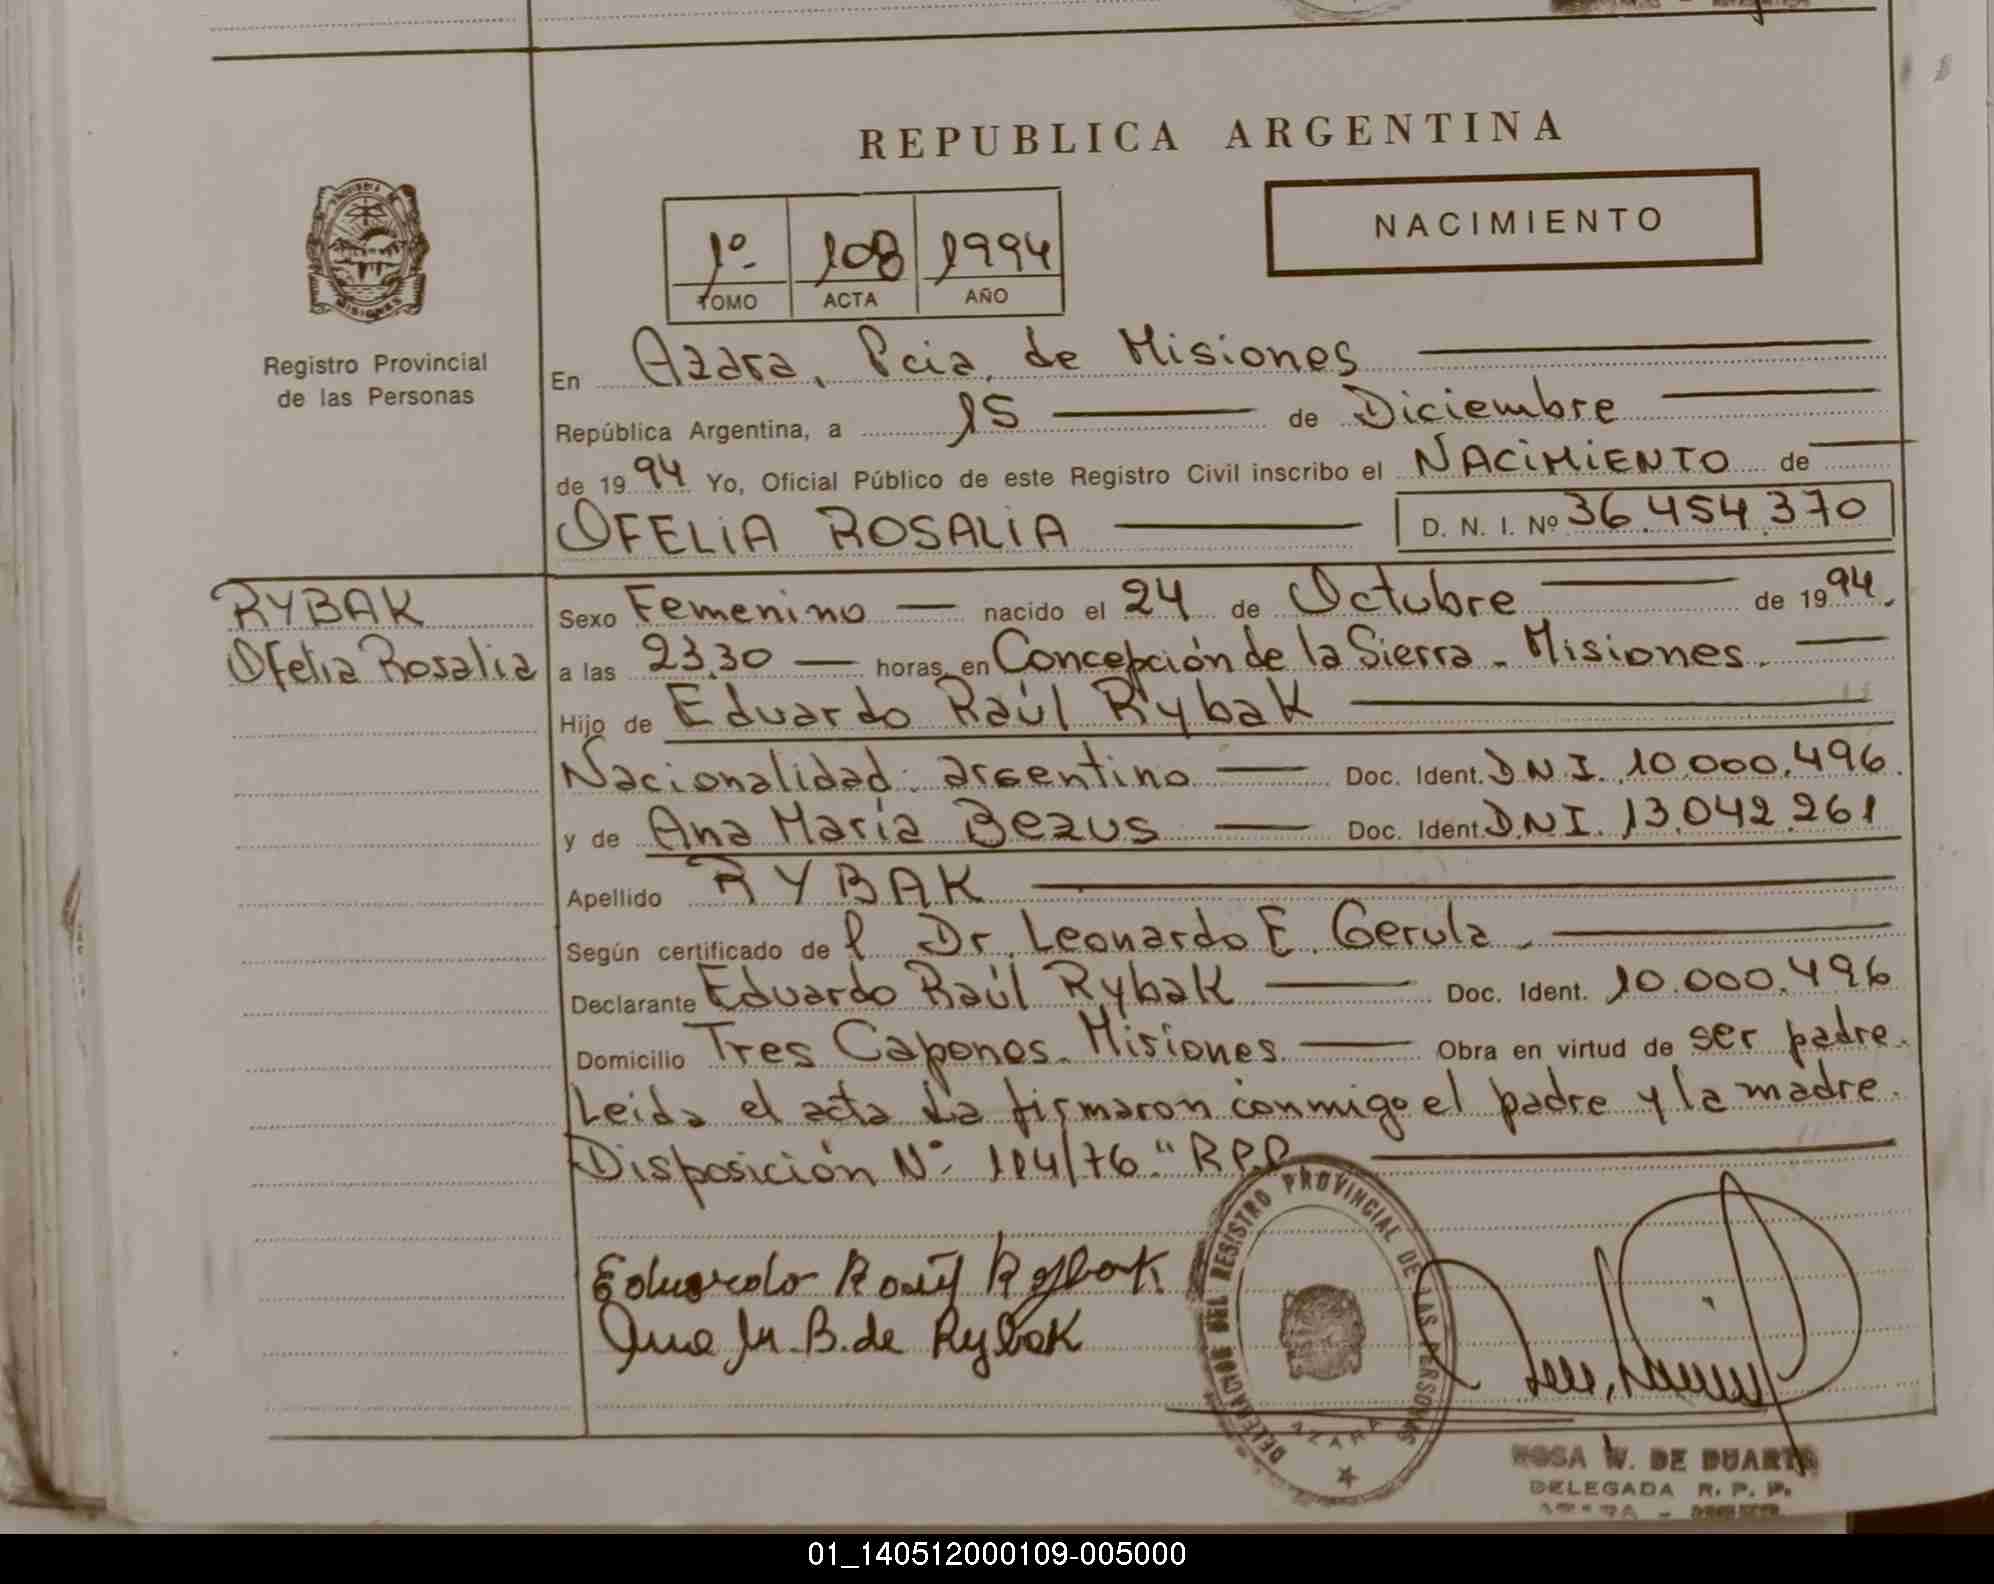 REPUBLICA ARGENTINA
NACIMIENTO
1º 108 1994
TOMO ACTA AÑO
MISIONES
Registro Provincial
de las Personas
En Azara, Pcia. de Misiones
República Argentina, a 15 de Diciembre
de 1994 Yo, Oficial Público de este Registro Civil inscribo el NACIMIENTO de
OFELIA ROSALIA D. N. I. Nº 36.454.370
RYBAK
Ofelia Rosalia
Sexo Femenino nacido el 24 de Octubre de 1994.
a las 23.30 horas, en Concepción de la Sierra - Misiones.
Hijo de Eduardo Raúl Rybak
Nacionalidad: argentino Doc. Ident. DNI. 10.000.496.
y de Ana María Bezus Doc. Ident. DNI. 13.042.261
Apellido RYBAK
Según certificado de l Dr. Leonardo E. Gerula.
Declarante Eduardo Raúl Rybak Doc. Ident. 10.000.496
Domicilio Tres Capones. Misiones. Obra en virtud de ser padre.
Leida el acta La firmaron conmigo el padre y la madre.
Disposición Nº 114/76 "RPP
Eduardo Raúl Rybak.
Ana M. B. de Rybak
DELEGACION DEL REGISTRO PROVINCIAL DE LAS PERSONAS
AZARA
ROSA W. DE DUARTE
DELEGADA R. P. P.
01_140512000109-005000